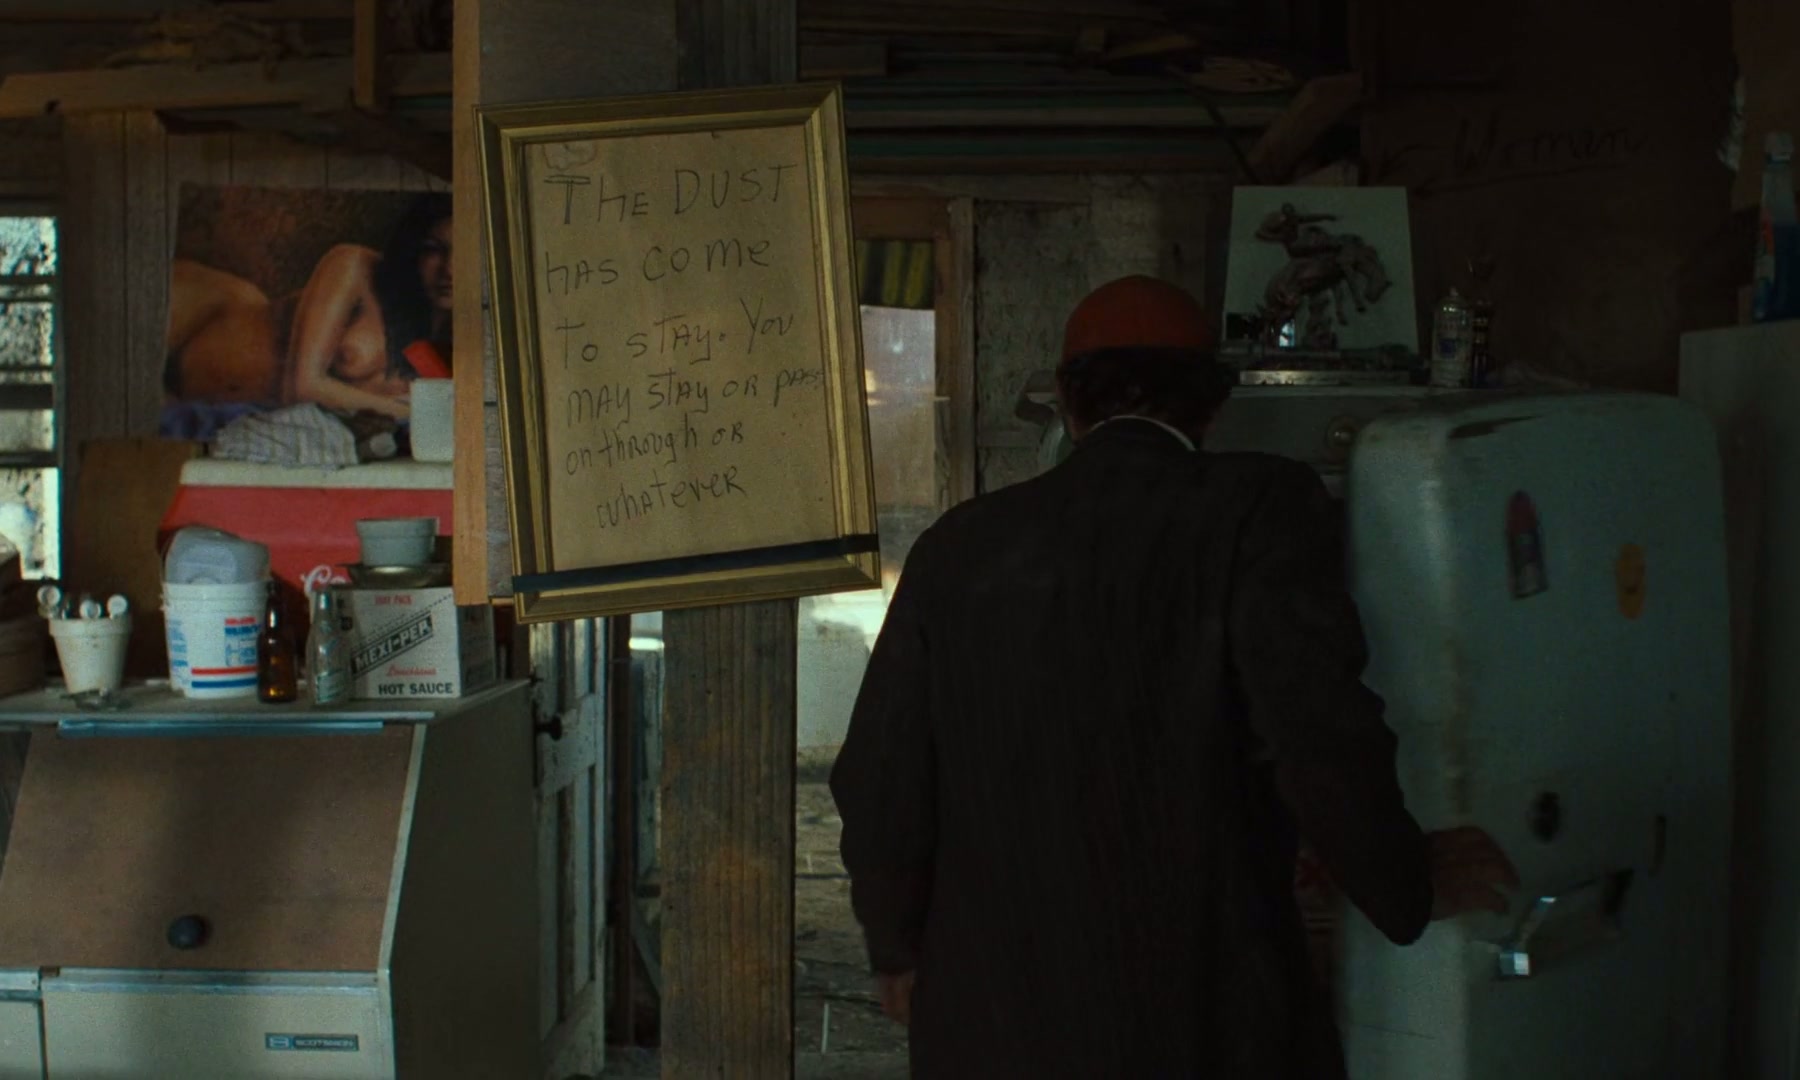 THE DUST
HAS COME
TO STAY. YOU
MAY STAY OR PASS
on through OR
whatever
Woman
HOT PACK
MEXI-PEP
Louisiana
HOT SAUCE
SCOTSMAN